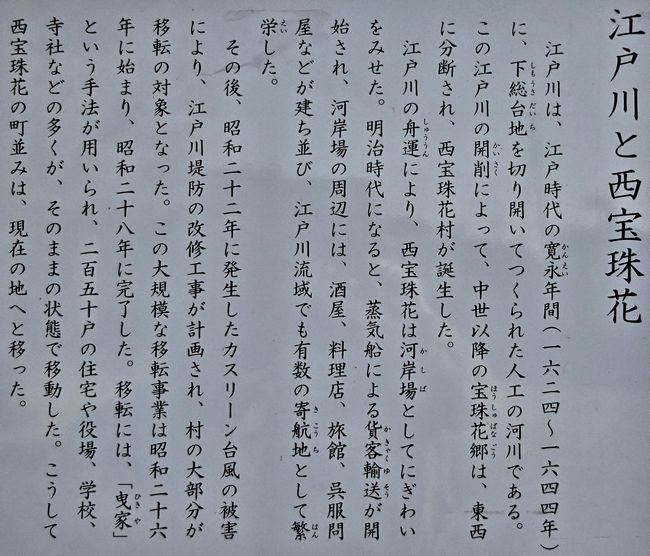 江戸川と西宝珠花
江戸川は、江戸時代の寛永年間(一六二四〜一六四四年)
に、下総台地を切り開いてつくられた人工の河川である。
この江戸川の開削によって、中世以降の宝珠花郷は、東西
に分断され、西宝珠花村が誕生した。
江戸川の舟運により、西宝珠花は河岸場としてにぎわい
をみせた。明治時代になると、蒸気船による貨客輸送が開
始され、河岸場の周辺には、酒屋、料理店、旅館、呉服問
屋などが建ち並び、江戸川流域でも有数の寄航地として繁
栄した。
その後、昭和二十二年に発生したカスリーン台風の被害
により、江戸川堤防の改修工事が計画され、村の大部分が
移転の対象となった。この大規模な移転事業は昭和二十六
年に始まり、昭和二十八年に完了した。移転には、「曳家」
という手法が用いられ、二百五十戸の住宅や役場、学校、
寺社などの多くが、そのままの状態で移動した。こうして
西宝珠花の町並みは、現在の地へと移った。